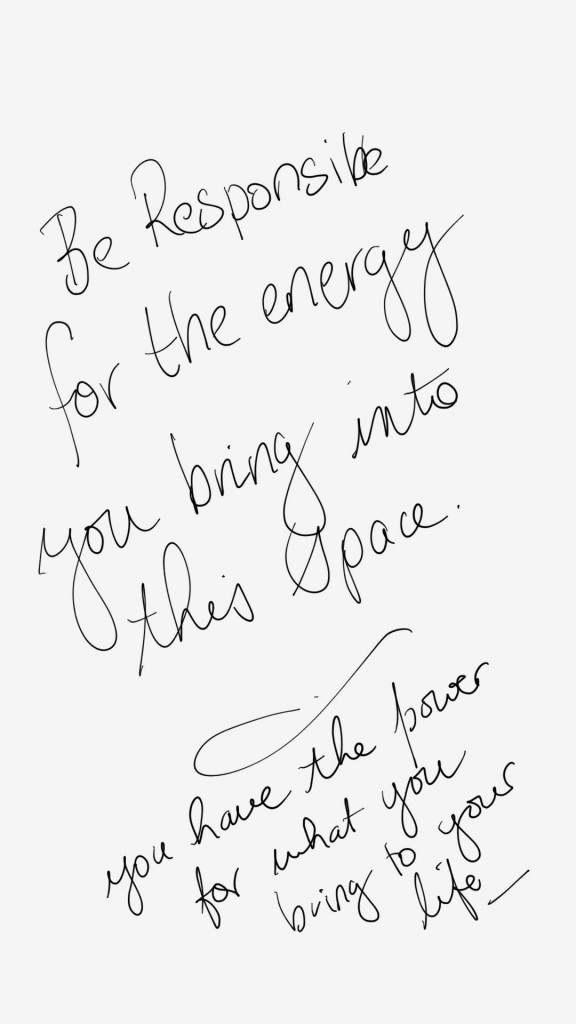 Be Responsible
for the energy
you bring into
this Space.
you have the power
for what you
bring to your
life_